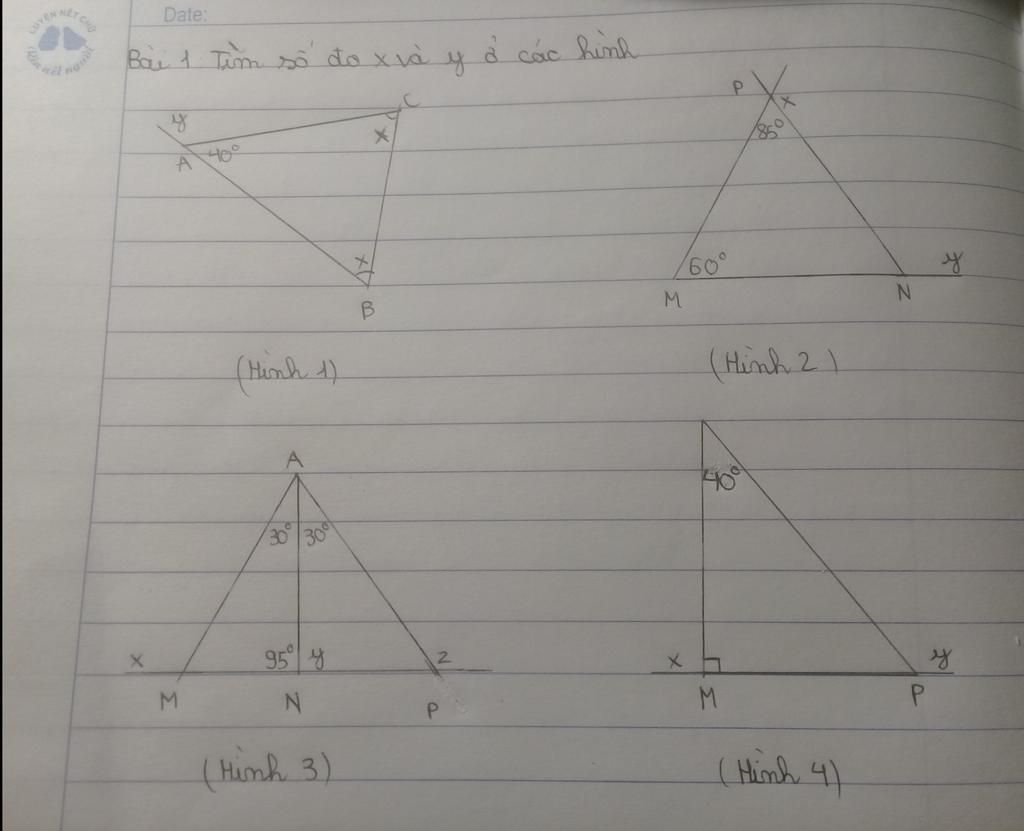 Date:
LUYỆN NÉT CHỮ
Rèn nết người
Bài 1 Tìm số đo x và y ở các hình
y
A
40°
x
C
x
B
(Hình 1)
P
x
85°
M
60°
N
y
(Hình 2)
A
30° 30°
x
95° y
z
M
N
P
(Hình 3)
40°
x
y
M
P
(Hình 4)